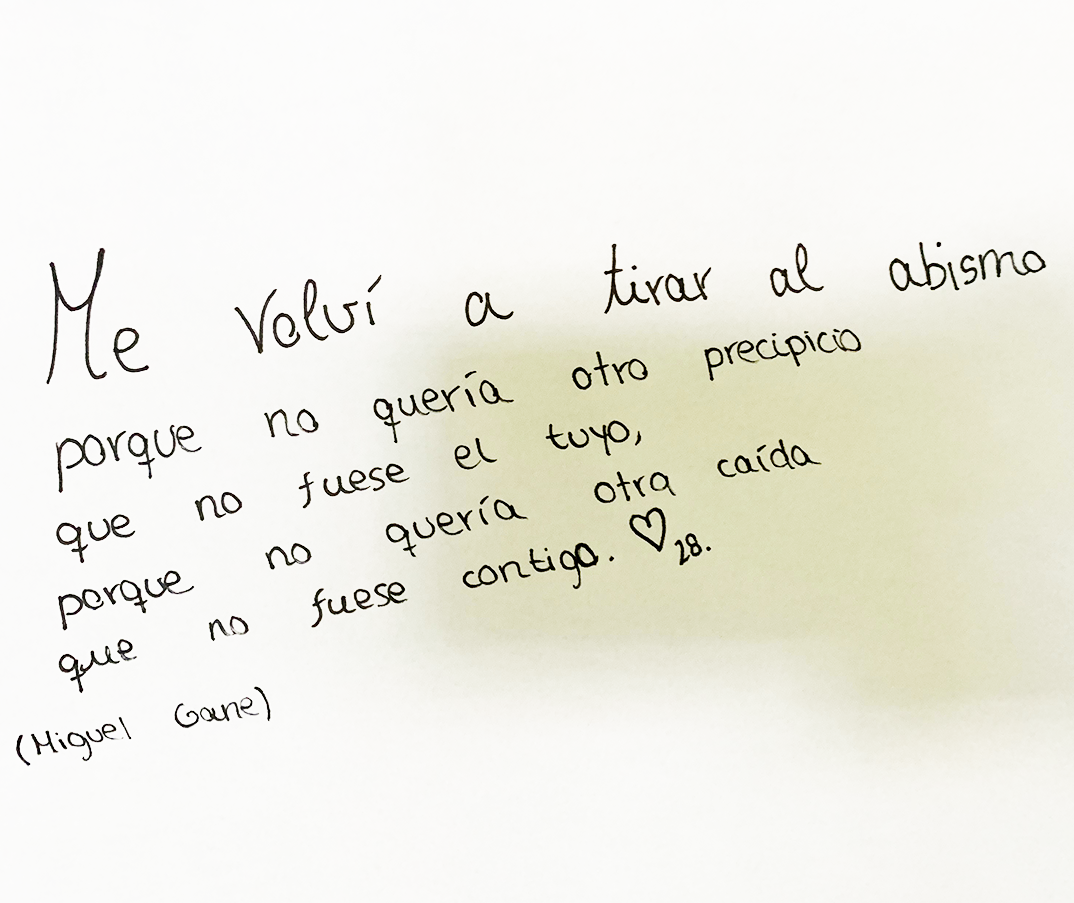 Me volví a tirar al abismo
porque no quería otro precipicio
que no fuese el tuyo,
porque no quería otra caída
que no fuese contigo. ♡ 28.
(Miguel Gane)